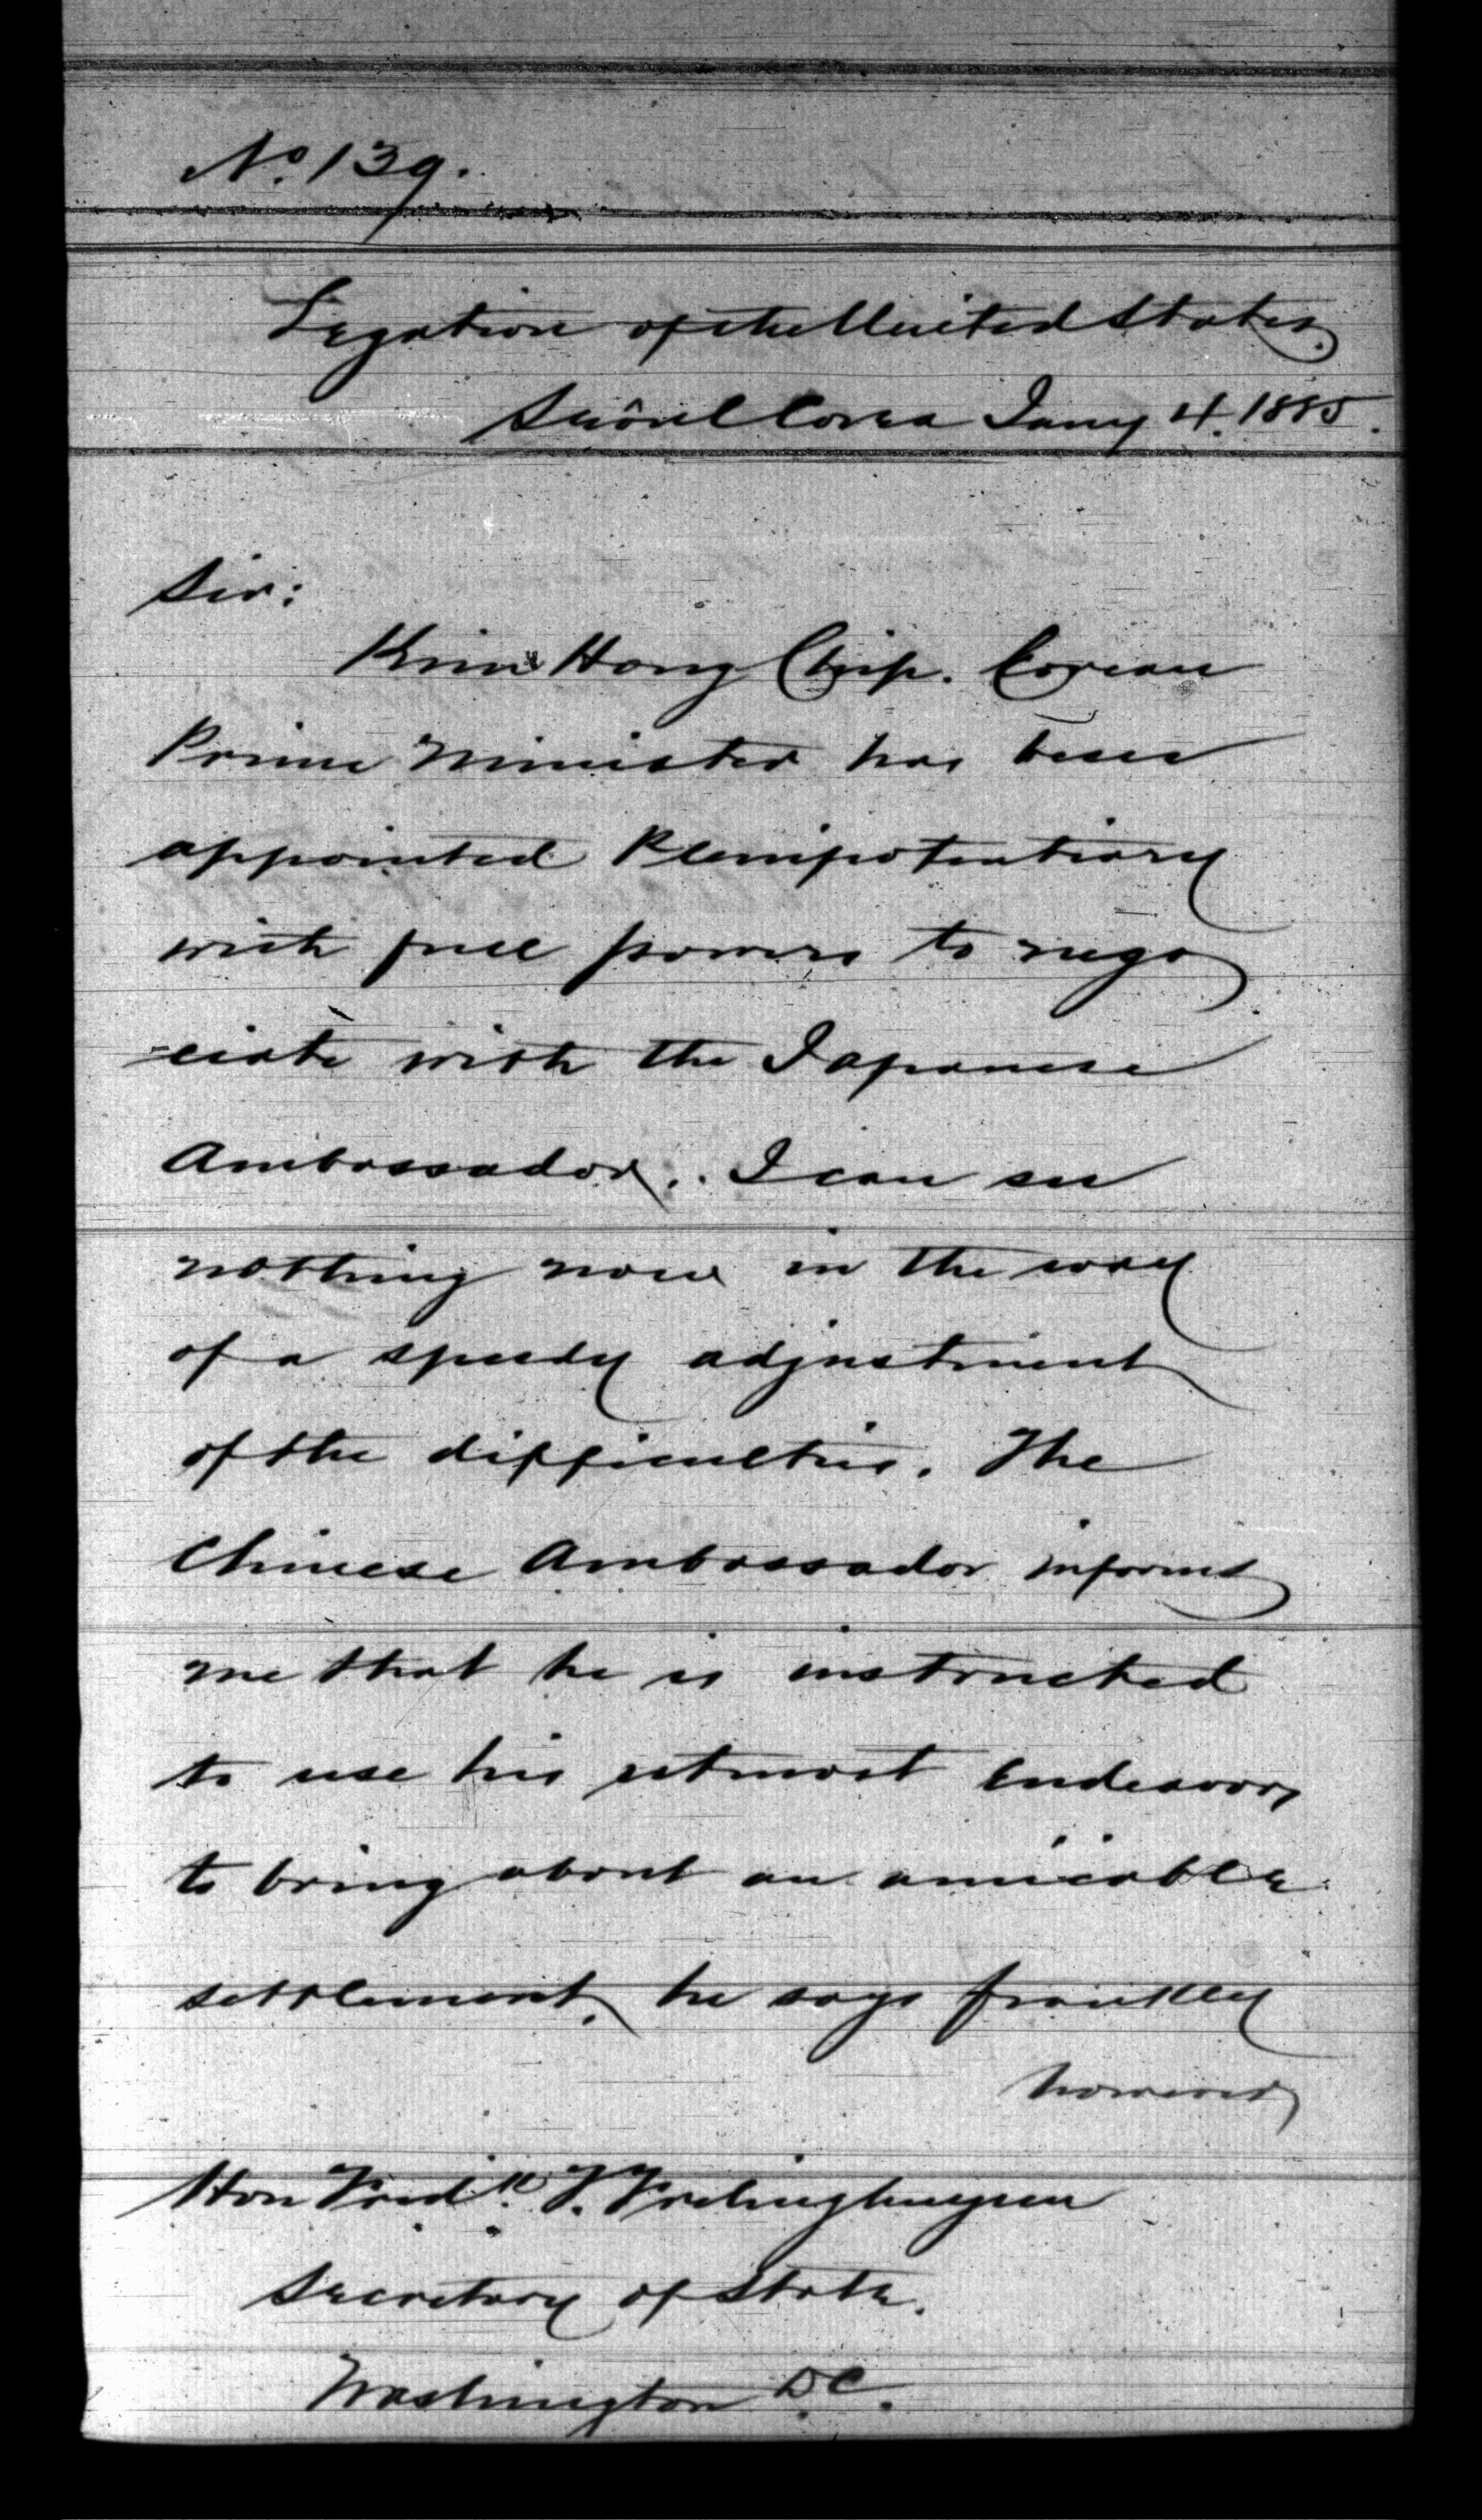 No. 139.
Legation of the United States.
Seôul Corea Jany 4. 1885.
Sir:
Kim Hong Chip. Corean
Prime Minister has been
appointed Plenipotentiary
with full powers to nego
-ciate with the Japanese
Ambassador. I can see
nothing now in the way
of a speedy adjustment
of the difficulties. The
Chinese Ambassador informs
me that he is instructed
to use his utmost endeavors
to bring about an amicable
settlement, he says frankly
however,
Hon Fredk. T. Frelinghuysen
Secretary of State.
Washington D.C.